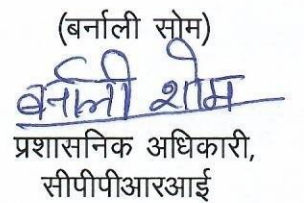 (बर्नाली सोम)
बर्नाली शोम
प्रशासनिक अधिकारी,
सीपीपीआरआई